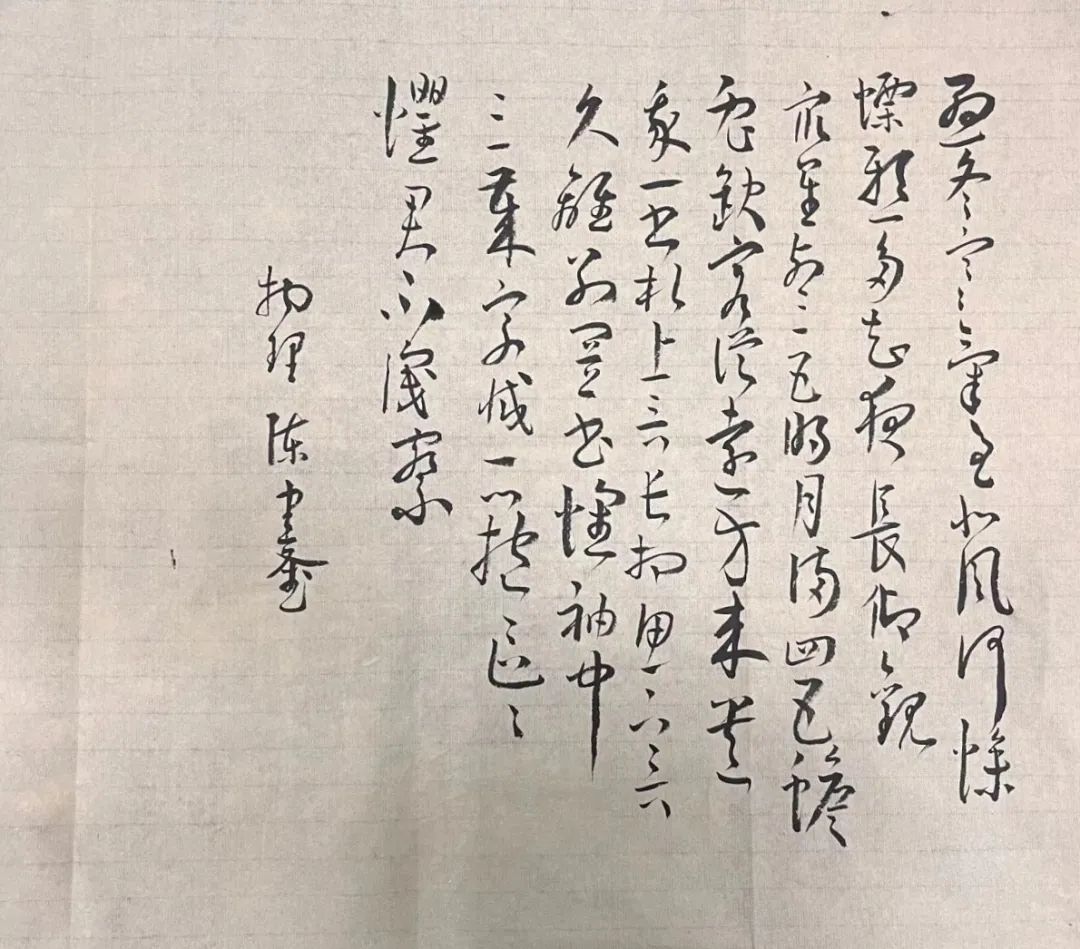 孟冬寒氣至北風何慘
慄愁多知夜長仰觀
眾星列三五明月滿四五蟾
兔缺客從遠方來遺
我一書札上言長相思下言
久離別置書懷袖中
三歲字滅一心抱區〻
懼君不識察
物理 陈